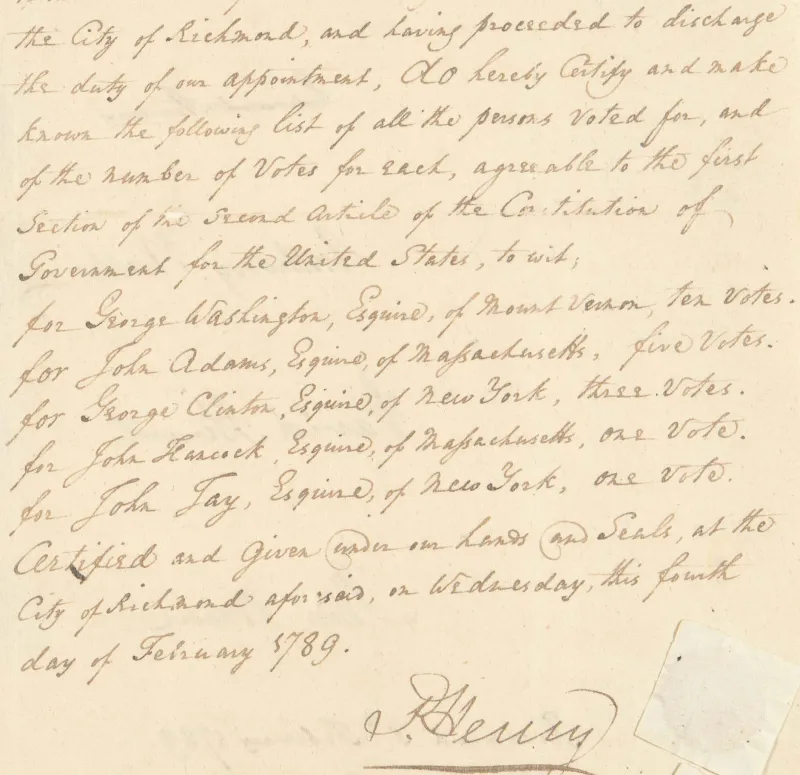 the City of Richmond, and having proceeded to discharge
the duty of our appointment, Do hereby Certify and make
known the following list of all the persons voted for, and
of the number of Votes for each, agreeable to the first
Section of the Second Article of the Constitution of
Government for the United States, to wit;
for George Washington, Esquire, of Mount Vernon, ten Votes.
for John Adams, Esquire, of Massachusetts, five Votes.
for George Clinton, Esquire, of New York, three Votes.
for John Hancock, Esquire, of Massachusetts, one Vote.
for John Jay, Esquire, of New York, one Vote.
Certified and Given under our hands and Seals, at the
City of Richmond aforesaid, on Wednesday, this fourth
day of February 1789.
P. Henry